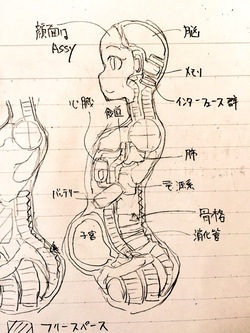 顔面
Assy
脳
メモリ
インターフェース群
心臓
肺
電源系
バッテリー
骨格
消化管
子宮
フリースペース